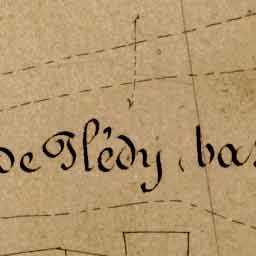 de Plédy, bas